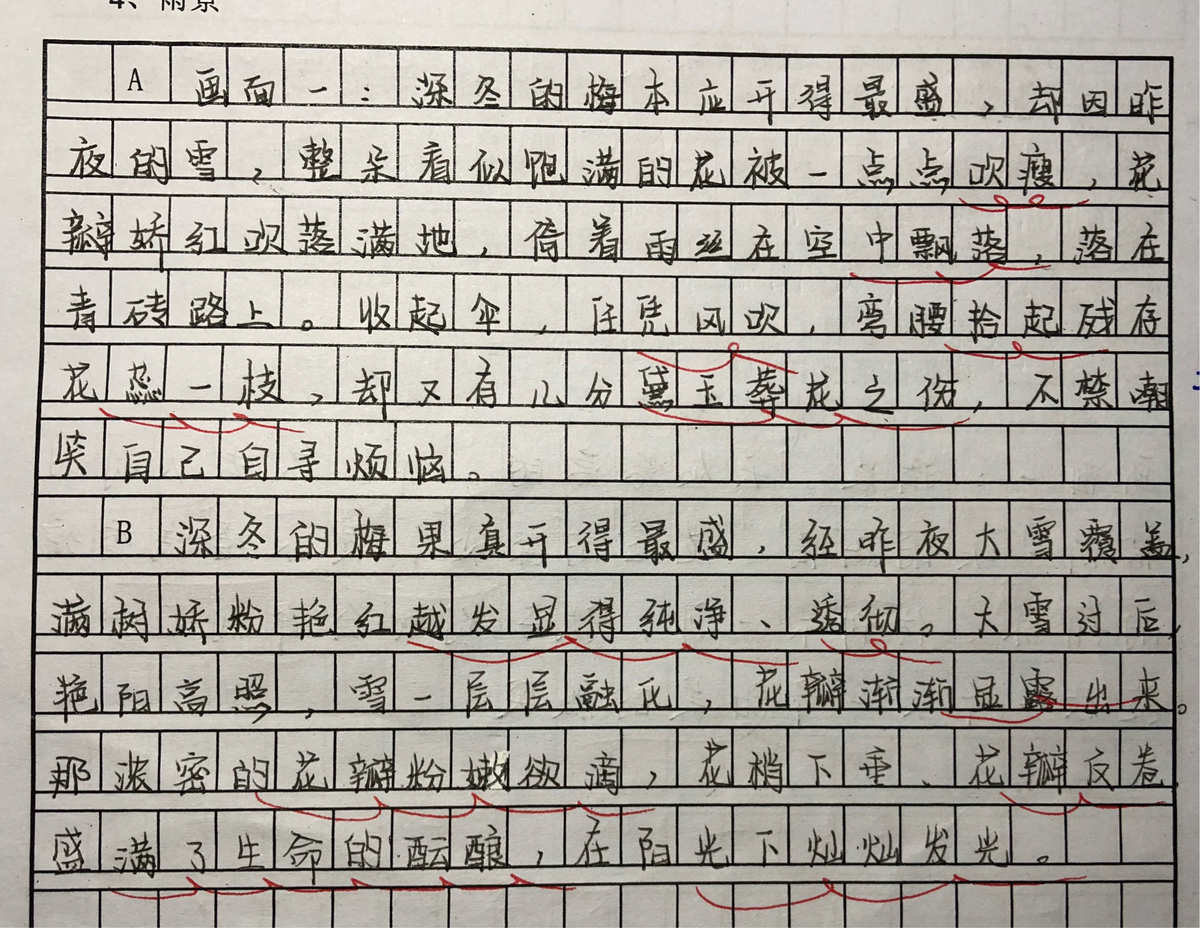 4、雨景
A 画面一:深冬的梅本应开得最盛,却因昨
夜的雪,整朵看似饱满的花被一点点吹瘦,花
瓣娇红吹落满地,倚着雨丝在空中飘落,落在
青砖路上。收起伞,任凭风吹,弯腰拾起残存
花蕊一枝,却又有几分黛玉葬花之伤,不禁嘲
笑自己自寻烦恼。
B 深冬的梅果真开得最盛,经昨夜大雪覆盖,
满树娇粉艳红越发显得纯净、透彻。大雪过后,
艳阳高照,雪一层层融化,花瓣渐渐显露出来。
那浓密的花瓣粉嫩欲滴,花梢下垂、花瓣反卷
盛满了生命的酝酿,在阳光下灿灿发光。